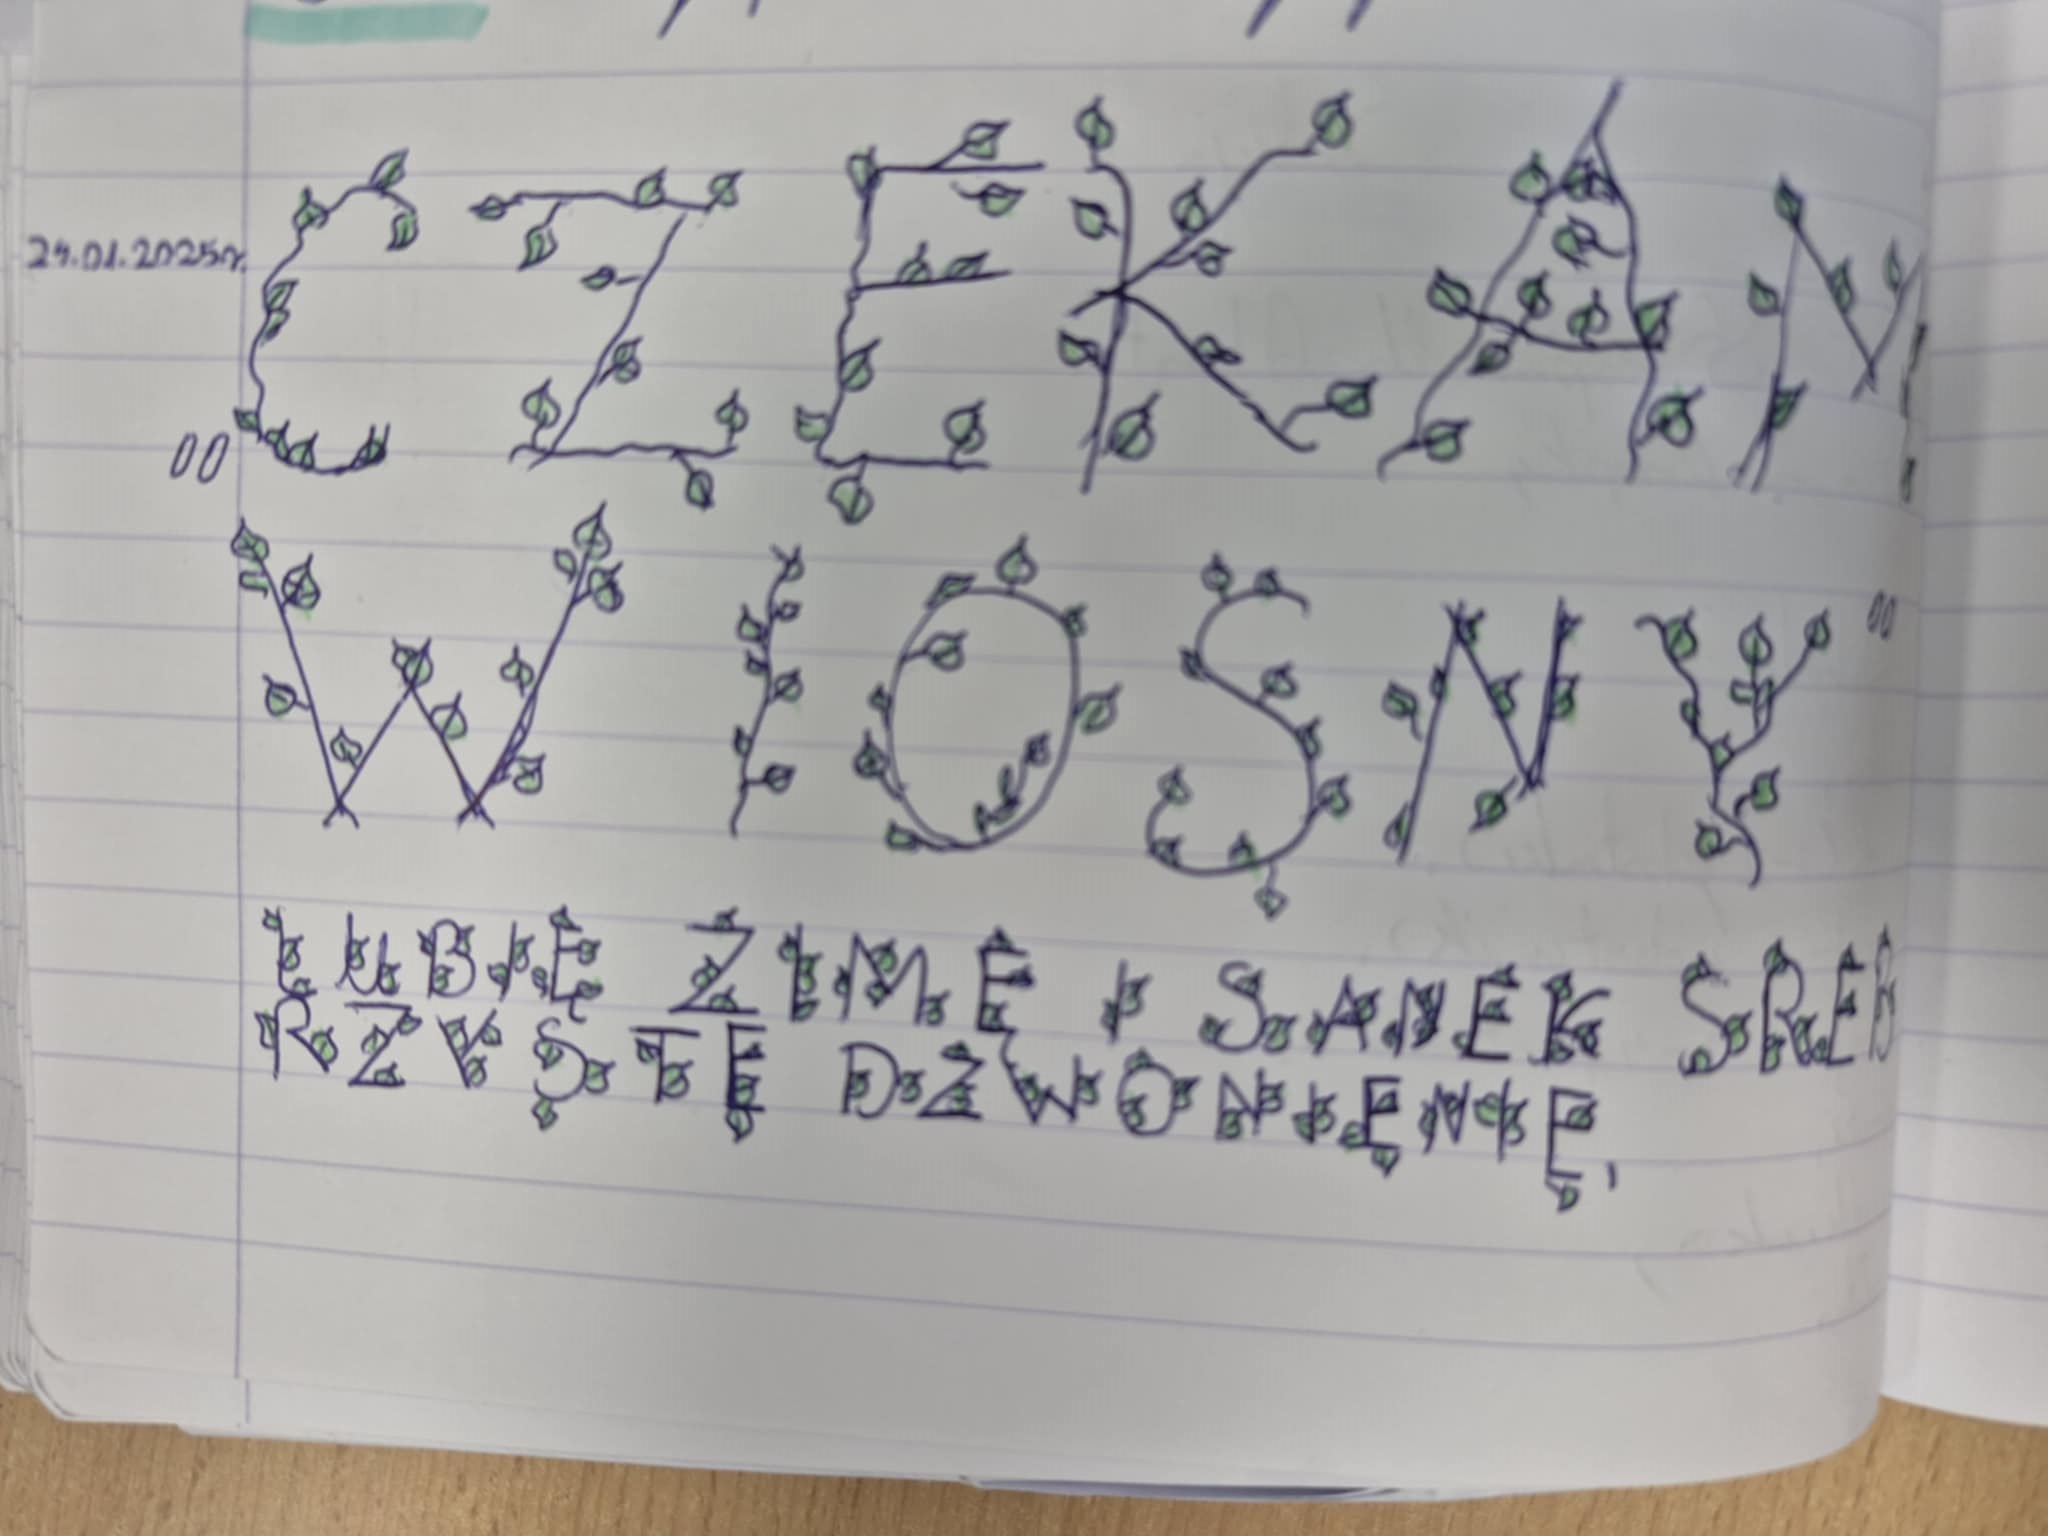 24.01.2025r.
"CZEKAM
WIOSNY"
LUBIĘ ZIMĘ I SANEK SREB
RZYSTE DZWONIENIE,